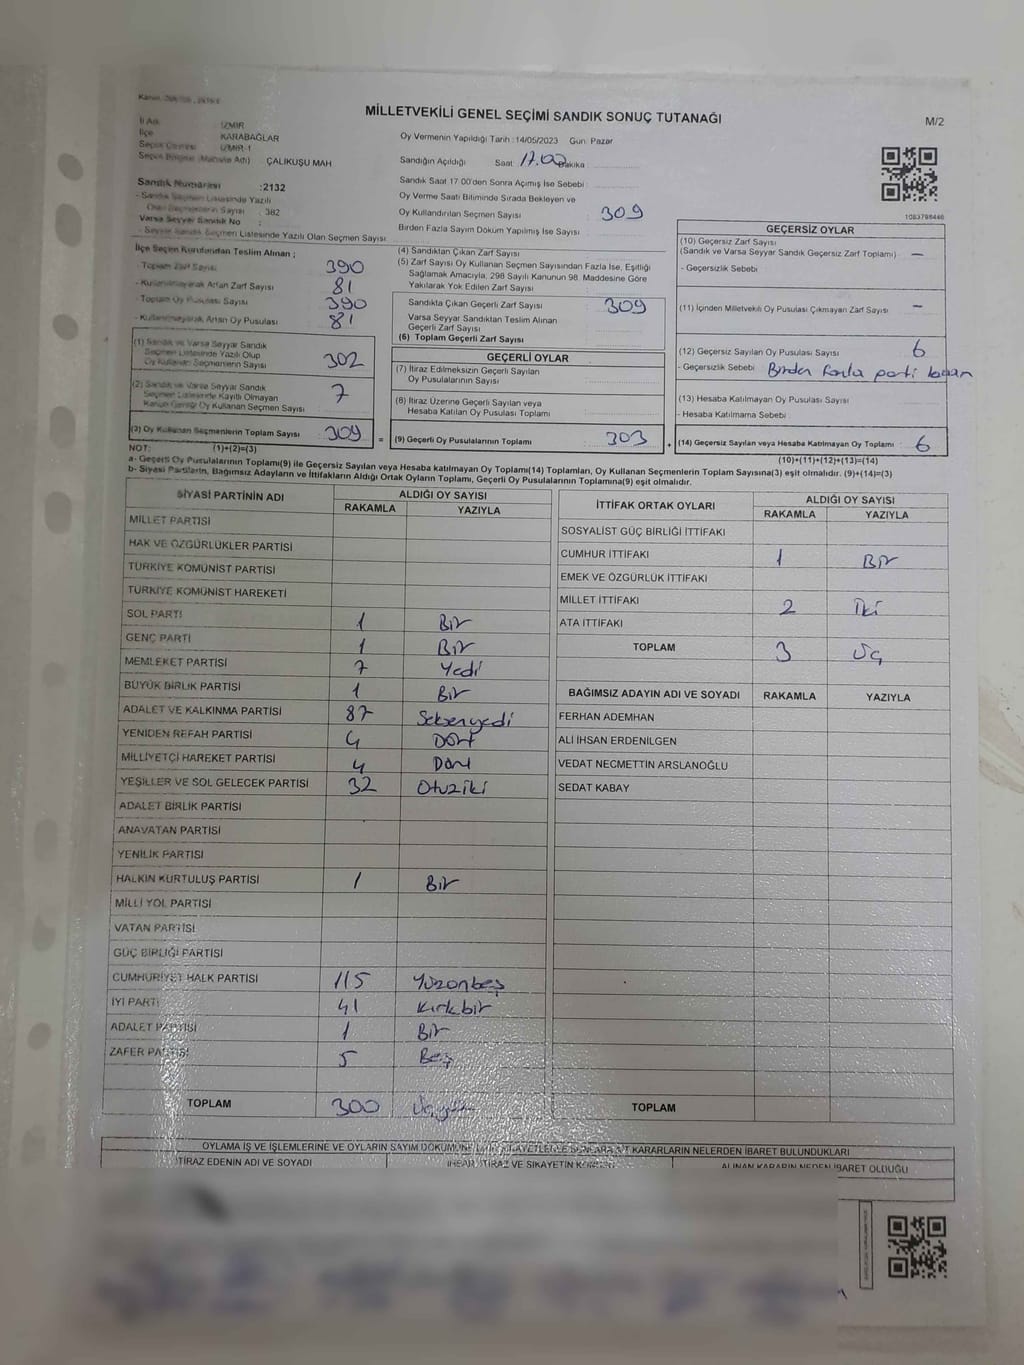 MİLLETVEKİLİ GENEL SEÇİMİ SANDIK SONUÇ TUTANAĞI
M/2
İl Adı : İZMİR
İlçe : KARABAĞLAR
Seçim Çevresi : İZMİR-1
ÇALIKUŞU MAH
Oy Vermenin Yapıldığı Tarih : 14/05/2023 Gün: Pazar
Sandığın Açıldığı Saat 17.00 Dakika
Sandık Saat 17:00'den Sonra Açımış İse Sebebi
Oy Verme Saati Bitiminde Sırada Bekleyen ve
Oy Kullandırılan Seçmen Sayısı 309
Birden Fazla Sayım Döküm Yapılmış İse Sayısı
1083798446
Sandık Numarası :2132
- Sandık Seçmen Listesinde Yazılı
Olan Seçmenlerin Sayısı : 382
Varsa Seyyar Sandık No :
- Seyyar Sandık Seçmen Listesinde Yazılı Olan Seçmen Sayısı :
İlçe Seçim Kurulundan Teslim Alınan ;
- Toplam Zarf Sayısı 390
- Kullanılmayarak Artan Zarf Sayısı 81
- Toplam Oy Pusulası Sayısı 390
- Kullanılmayarak Artan Oy Pusulası 81
(1) Sandık ve Varsa Seyyar Sandık
Seçmen Listesinde Yazılı Olup
Oy Kullanan Seçmenlerin Sayısı 302
(2) Sandık ve Varsa Seyyar Sandık
Seçmen Listesinde Kayıtlı Olmayan
Kanun Gereği Oy Kullanan Seçmen Sayısı 7
(3) Oy Kullanan Seçmenlerin Toplam Sayısı 309 =
(4) Sandıktan Çıkan Zarf Sayısı
(5) Zarf Sayısı Oy Kullanan Seçmen Sayısından Fazla İse, Eşitliği
Sağlamak Amacıyla, 298 Sayılı Kanunun 98. Maddesine Göre
Yakılarak Yok Edilen Zarf Sayısı
Sandıkta Çıkan Geçerli Zarf Sayısı 309
Varsa Seyyar Sandıktan Teslim Alınan
Geçerli Zarf Sayısı
(6) Toplam Geçerli Zarf Sayısı
GEÇERLİ OYLAR
(7) İtiraz Edilmeksizin Geçerli Sayılan
Oy Pusulalarının Sayısı
(8) İtiraz Üzerine Geçerli Sayılan veya
Hesaba Katılan Oy Pusulası Toplamı
(9) Geçerli Oy Pusulalarının Toplamı 303 +
GEÇERSİZ OYLAR
(10) Geçersiz Zarf Sayısı
(Sandık ve Varsa Seyyar Sandık Geçersiz Zarf Toplamı) –
- Geçersizlik Sebebi
(11) İçinden Milletvekili Oy Pusulası Çıkmayan Zarf Sayısı –
(12) Geçersiz Sayılan Oy Pusulası Sayısı 6
- Geçersizlik Sebebi Birden fazla parti
(13) Hesaba Katılmayan Oy Pusulası Sayısı
- Hesaba Katılmama Sebebi
(14) Geçersiz Sayılan veya Hesaba Katılmayan Oy Toplamı 6
NOT: (1)+(2)=(3)
(10)+(11)+(12)+(13)=(14)
a- Geçerli Oy Pusulalarının Toplamı(9) ile Geçersiz Sayılan veya Hesaba katılmayan Oy Toplamı(14) Toplamları, Oy Kullanan Seçmenlerin Toplam Sayısına(3) eşit olmalıdır. (9)+(14)=(3)
b- Siyasi Partilerin, Bağımsız Adayların ve İttifakların Aldığı Ortak Oyların Toplamı, Geçerli Oy Pusulalarının Toplamına(9) eşit olmalıdır.
SİYASİ PARTİNİN ADI
ALDIĞI OY SAYISI
RAKAMLA YAZIYLA
MİLLET PARTİSİ
HAK VE ÖZGÜRLÜKLER PARTİSİ
TÜRKİYE KOMÜNİST PARTİSİ
TÜRKİYE KOMÜNİST HAREKETİ
SOL PARTİ 1 Bir
GENÇ PARTİ 1 Bir
MEMLEKET PARTİSİ 7 Yedi
BÜYÜK BİRLİK PARTİSİ 1 Bir
ADALET VE KALKINMA PARTİSİ 87 Seksenyedi
YENİDEN REFAH PARTİSİ 4 Dört
MİLLİYETÇİ HAREKET PARTİSİ 4 Dört
YEŞİLLER VE SOL GELECEK PARTİSİ 32 Otuziki
ADALET BİRLİK PARTİSİ
ANAVATAN PARTİSİ
YENİLİK PARTİSİ
HALKIN KURTULUŞ PARTİSİ 1 Bir
MİLLİ YOL PARTİSİ
VATAN PARTİSİ
GÜÇ BİRLİĞİ PARTİSİ
CUMHURİYET HALK PARTİSİ 115 Yüzonbeş
İYİ PARTİ 41 Kırkbir
ADALET PARTİSİ 1 Bir
ZAFER PARTİSİ 5 Beş
TOPLAM 300 Üçyüz
İTTİFAK ORTAK OYLARI
ALDIĞI OY SAYISI
RAKAMLA YAZIYLA
SOSYALİST GÜÇ BİRLİĞİ İTTİFAKI
CUMHUR İTTİFAKI 1 Bir
EMEK VE ÖZGÜRLÜK İTTİFAKI
MİLLET İTTİFAKI 2 İki
ATA İTTİFAKI
TOPLAM 3 Üç
BAĞIMSIZ ADAYIN ADI VE SOYADI RAKAMLA YAZIYLA
FERHAN ADEMHAN
ALİ İHSAN ERDENİLGEN
VEDAT NECMETTİN ARSLANOĞLU
SEDAT KABAY
TOPLAM
OYLAMA İŞ VE İŞLEMLERİNE VE OYLARIN SAYIM DÖKÜMÜNE KARARLARIN NELERDEN İBARET BULUNDUKLARI
İTİRAZ EDENİN ADI VE SOYADI
İHBAR, İTİRAZ VE ŞİKAYETİN
ALINAN KARARIN NEDEN İBARET OLDUĞU